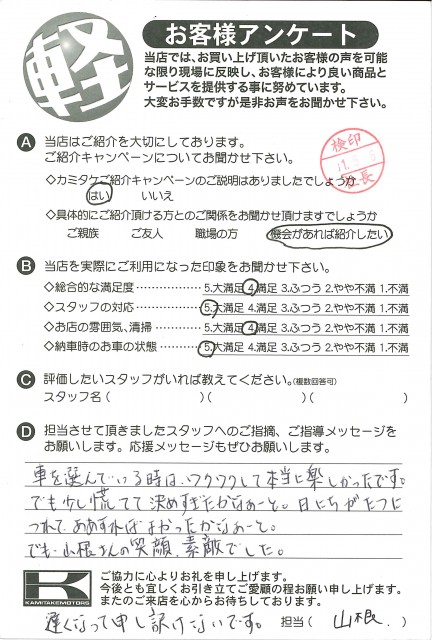 軽
お客様アンケート
当店では、お買い上げ頂いたお客様の声を可能
な限り現場に反映し、お客様により良い商品と
サービスを提供する事に努めています。
大変お手数ですが是非お声をお聞かせ下さい。
A 当店はご紹介を大切にしております。
ご紹介キャンペーンについてお聞かせ下さい。
検印
社長
◇カミタケご紹介キャンペーンのご説明はありましたでしょうか
はい いいえ
◇具体的にご紹介頂ける方とのご関係をお聞かせ頂けますでしょうか
ご親族 ご友人 職場の方 機会があれば紹介したい
B 当店を実際にご利用になった印象をお聞かせ下さい。
◇総合的な満足度………………5.大満足 4.満足 3.ふつう 2.やや不満 1.不満
◇スタッフの対応………………5.大満足 4.満足 3.ふつう 2.やや不満 1.不満
◇お店の雰囲気、清掃…………5.大満足 4.満足 3.ふつう 2.やや不満 1.不満
◇納車時のお車の状態…………5.大満足 4.満足 3.ふつう 2.やや不満 1.不満
C 評価したいスタッフがいれば教えてください。(複数回答可)
スタッフ名( )( )( )
D 担当させて頂きましたスタッフへのご指摘、ご指導メッセージを
お願いします。応援メッセージもぜひお願いします。
車を選んでいる時は、ワクワクして本当に楽しかったです。
でも少し慌てて決めすぎたかなぁーと。日にちがたつに
つれて、ああすればよかったかなぁーと。
でも山根さんの笑顔、素敵でした。
K
KAMITAKEMOTORS
ご協力に心よりお礼を申し上げます。
今後とも宜しくお引き立てご愛顧の程お願い申し上げます。
またのご来店を心からお待ちしております。
遅くなって申し訳ないです。 担当( 山根 )